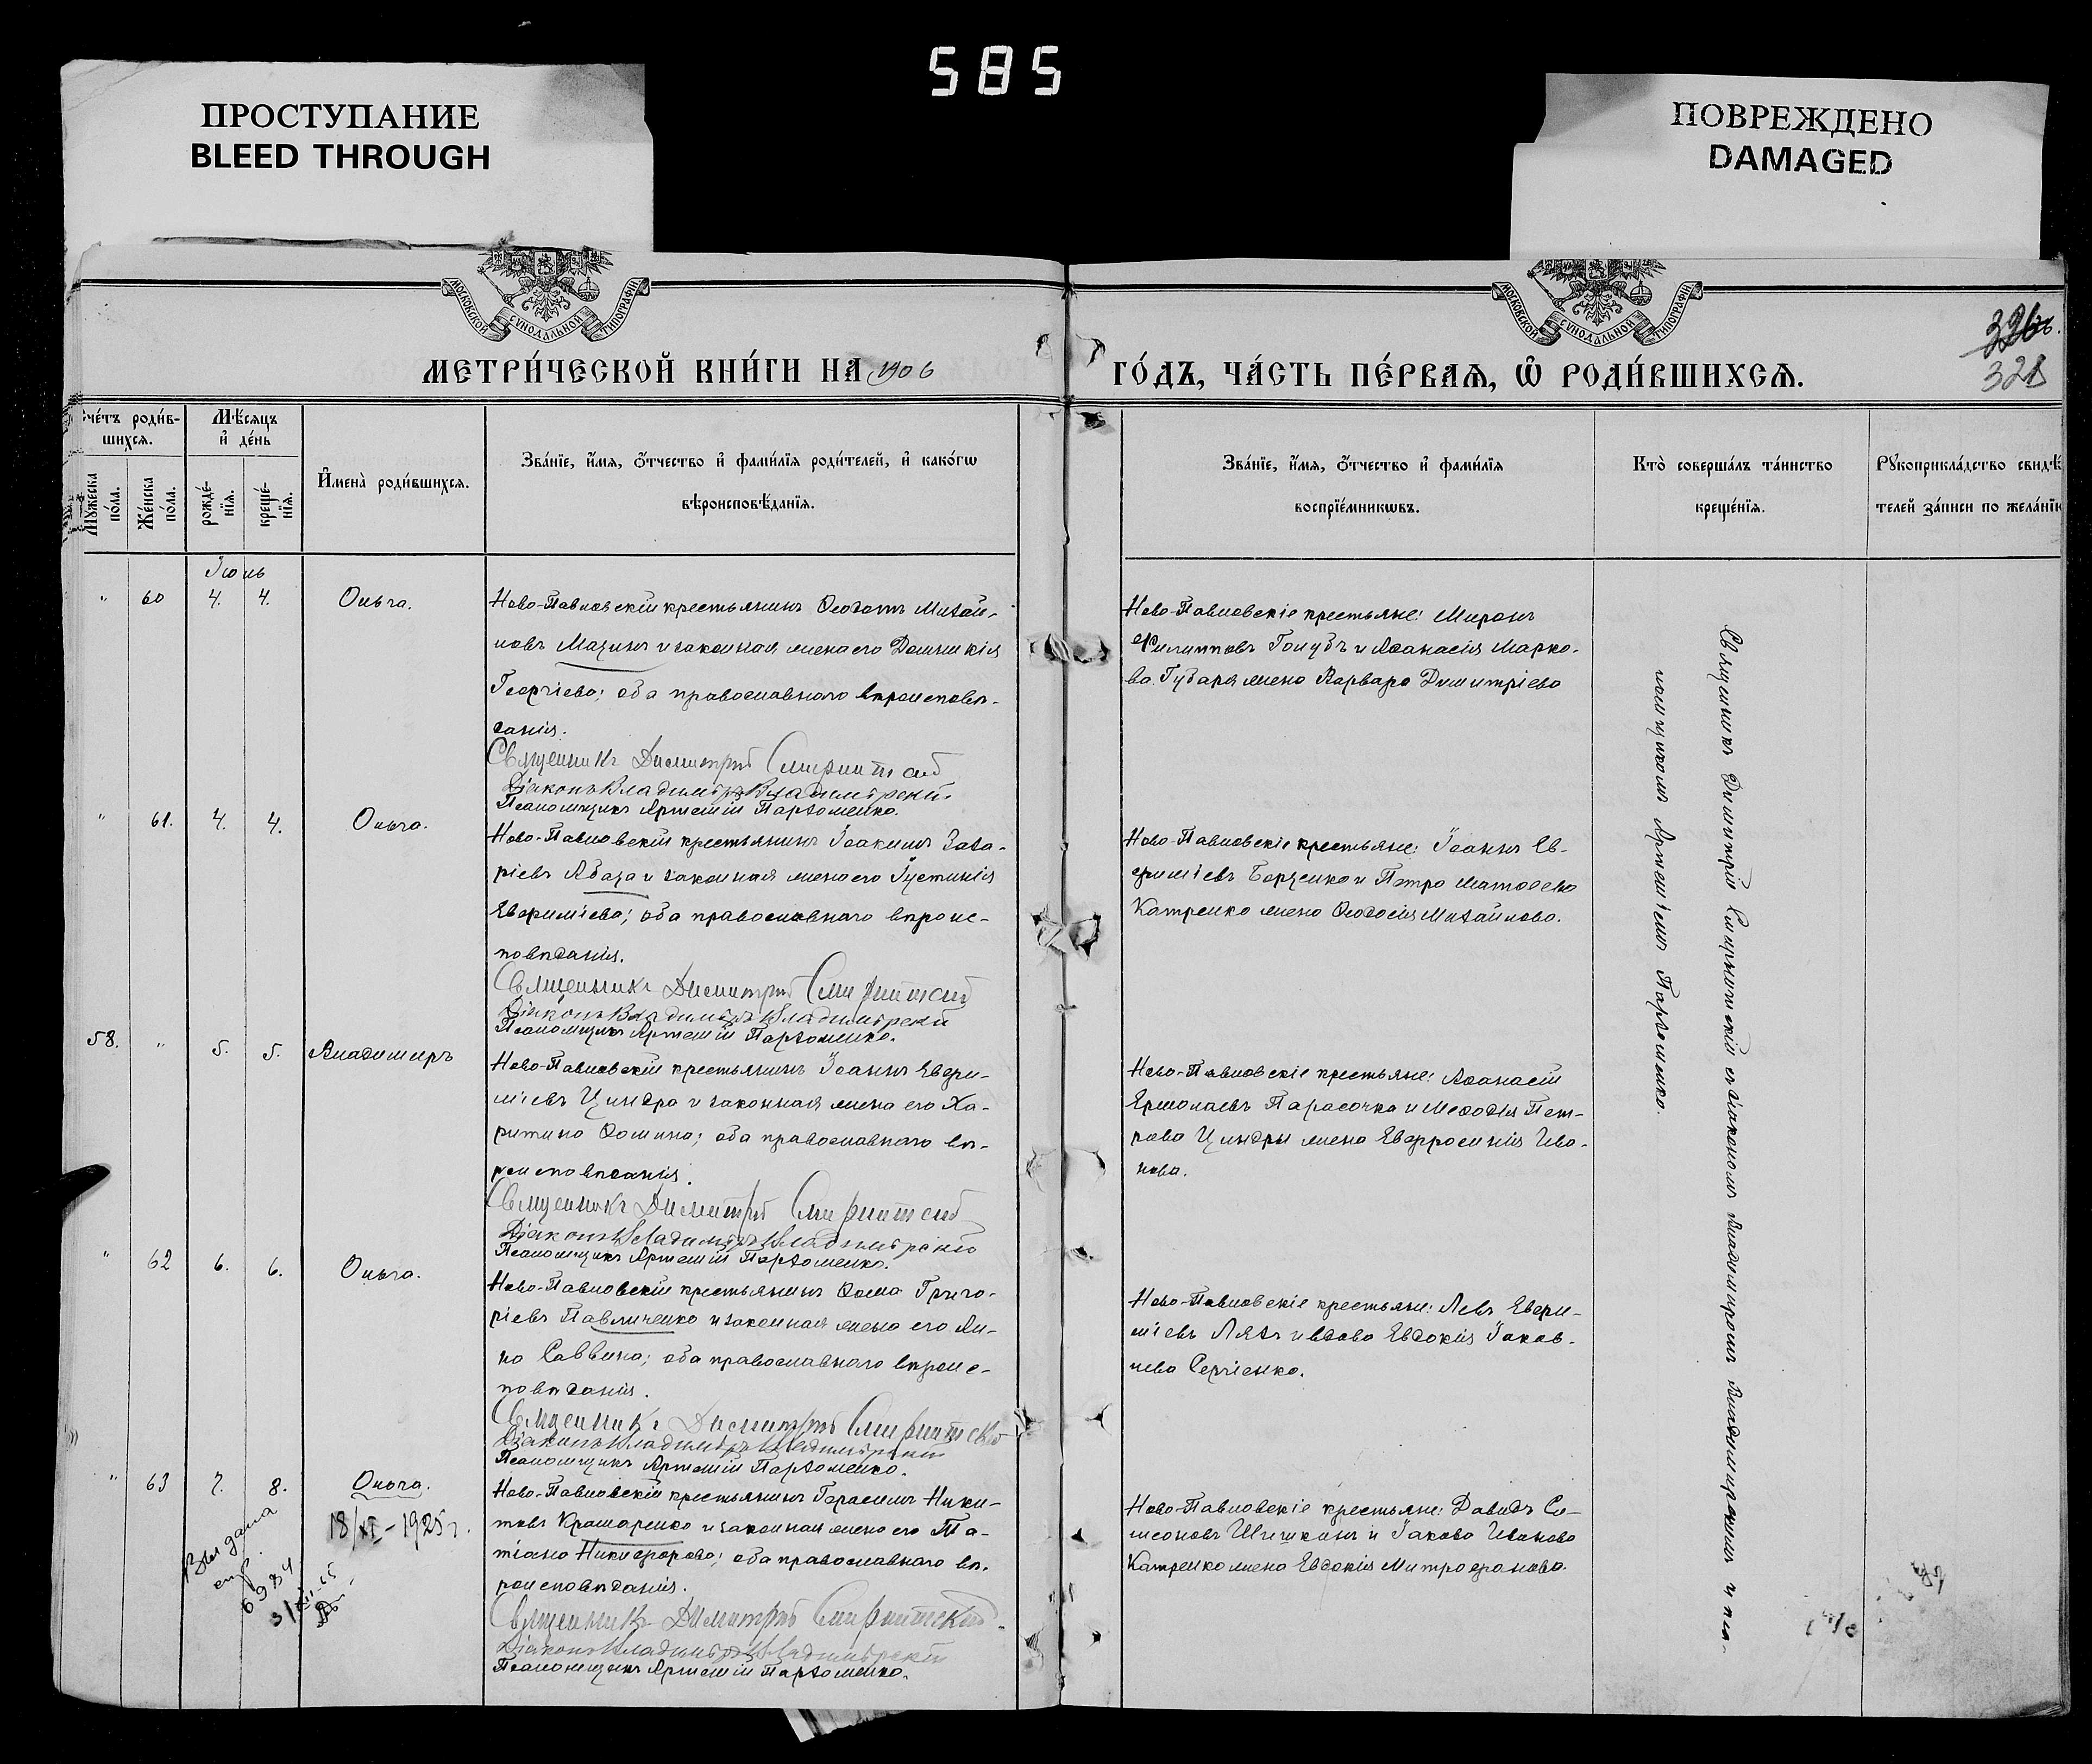 585
ПРОСТУПАНИЕ
BLEED THROUGH
ПОВРЕЖДЕНО
DAMAGED
МОСКОВСКОЙ СѴНОДАЛЬНОЙ ТИПОГРАФІИ
МОСКОВСКОЙ СѴНОДАЛЬНОЙ ТИПОГРАФІИ
326
328
МЕТРИ́ЧЕСКОЙ КНИ́ГИ НА 1906
ГО́ДЪ, ЧА́СТЬ ПЕ́РВАѦ, Ѡ РОДИ́ВШИХСѦ.
че́тъ роди́в-
шихсѧ.
Мѣ́сѧцъ
и҆ де́нь
Мꙋ́жеска по́ла.
Же́нска по́ла.
рожде́-
нїѧ.
креще́-
нїѧ.
И҆мена̀ роди́вшихсѧ.
Зва́нїе, и҆́мѧ, ѻ҆́тчество и҆ фами́лїѧ роди́телей, и҆ како́гѡ
вѣроисповѣ́данїѧ.
Зва́нїе, и҆́мѧ, ѻ҆́тчество и҆ фами́лїѧ
воспрїе́мникѡвъ.
Кто̀ соверша́лъ та́инство
креще́нїѧ.
Рꙋкоприкла́дство свидѣ́
телей за́писи по жела́нїю
Іюнь
" 60 4. 4. Ольга.
Ново-Павловскій крестьянинъ Ѳеодотъ Михай-
ловъ Мазинъ и законная жена его Домникія
Георгіева; оба православнаго вѣроисповѣ-
данія.
Священникъ Димитрій
Діаконъ Владиміръ Владимірскій
Псаломщикъ Артемій Пархоменко.
Ново-Павловскіе крестьяне: Миронъ
Филипповъ Голубъ и Аѳанасія Марко-
ва Губаря жена Варвара Димитріева
" 61. 4. 4. Ольга.
Ново-Павловскій крестьянинъ Іоакимъ Заха-
ріевъ Абаза и законная жена его Іустинія
Евфиміева; оба православнаго вѣроис-
повѣданія.
Священникъ Димитрій
Діаконъ Владиміръ Владимірскій
Псаломщикъ Артемій Пархоменко.
Ново-Павловскіе крестьяне: Іоаннъ Ев-
фиміевъ Борзенко и Петра Матѳеева
Катренко жена Ѳеодосія Михайлова.
58. " 5. 5. Владимиръ
Ново-Павловскій крестьянинъ Іоаннъ Евфи-
міевъ Циндра и законная жена его Ха-
ритина Ѳомина; оба православнаго вѣ-
роисповѣданія.
Священникъ Димитрій
Діаконъ Владиміръ Владимірскій
Псаломщикъ Артемій Пархоменко.
Ново-Павловскіе крестьяне: Аѳанасій
Ермолаевъ Парасочка и Меѳодія Пет-
рова Циндры жена Евфросинія Ива-
нова.
" 62 6. 6. Ольга.
Ново-Павловскій крестьянинъ Ѳома Григо-
ріевъ Павличенко и законная жена его Ан-
на Саввина; оба православнаго вѣроис-
повѣданія.
Священникъ Димитрій
Діаконъ Владиміръ Владимірскій
Псаломщикъ Артемій Пархоменко.
Ново-Павловскіе крестьяне: Левъ Евфи-
міевъ Ляхъ и вдова Евдокія Іаков-
лева Сергіенко.
" 63 7. 8. Ольга.
18/XI-1925г.
Выдана
6984
Ново-Павловскій крестьянинъ Герасимъ Ники-
товъ Крамаренко и законная жена его Та-
тіана Никифорова; оба православнаго вѣ-
роисповѣданія.
Священникъ Димитрій
Діаконъ Владиміръ Владимірскій
Псаломщикъ Артемій Пархоменко.
Ново-Павловскіе крестьяне: Давидъ Си-
меоновъ Шишкинъ и Іакова Иванова
Катренко жена Евдокія Митрофанова.
Священникъ Димитрій съ діакономъ Владимиромъ Владимирскимъ и пса-
ломщикомъ Артеміемъ Пархоменко.